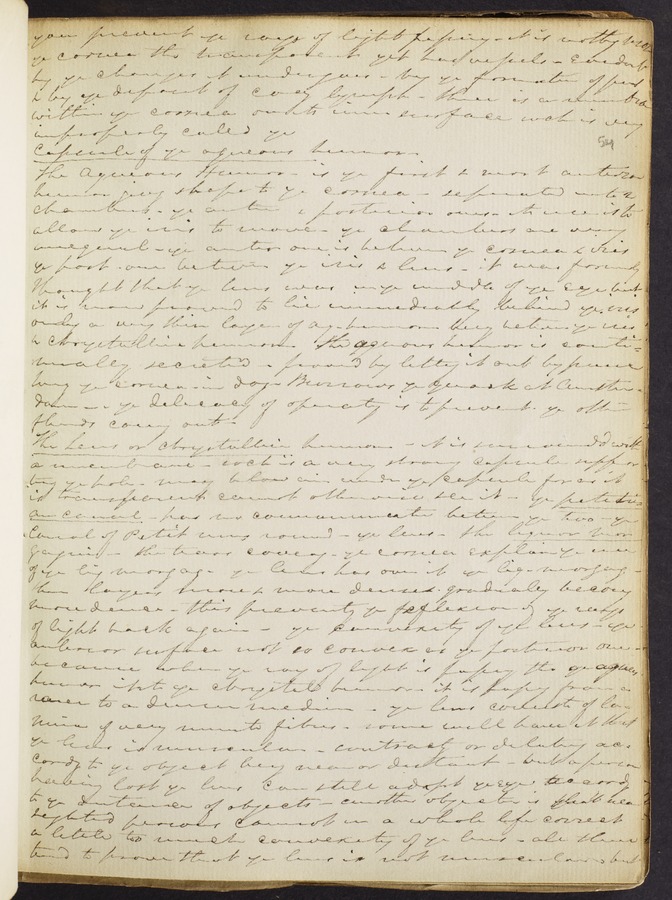 your prevent ye rays of light passing - it is with vessels
ye cornea tho transparent yet has vessels - Evident
by ye changes it undergoes - by ye formation of pus
& by ye deposit of coag lymph - there is a membra
within ye cornea on its inner surface wch is very
improperly called ye
Capsule of ye aqueous humor -
The Aqueous Humor - is ye first & most anterior
humor giving shape to ye cornea - separated into 2
chambers - ye anter & posterior ones - its use is to
allow ye iris to move - ye chambers are very
unequal - ye anter one is between ye cornea & iris
ye post. one between ye iris & lens - it was formerly
thought that ye lens was in ye middle of ye Eye but
it is now proved to lie immediately behind ye iris
only a very thin layer of aq: humor being between ye iris
& chrystalline humor. The aqueous humor is conti-
nually secreted - proved by letting it out by punc
turing ye cornea in dogs Burrows ye quack at Amster-
dam - ye delicacy of operating is to prevent ye
flends coming out -
The Lens or chrystalline humor - it is surrounded with
a membrane - wch is a very strong capsule suppor
ting ye whole - may blow air under ye capsule for as it
is transparent cannot otherwise see it - ye petitsi
an canal has no communicate between ye two - ye
Canal of Petit runs round - ye lens - the liquor mor
gagni - the trans cover - ye cornea explain ye use
of ye liq morgag - ye lens has over it ye liq. morgag -
then layers more & more denser gradually becomg
more dense - this prevents ye reflexion of ye rays
of light back again - ye convexity of ye lens - ye
anterior surface not so convex as ye posterior one -
because when ye ray of light is passg thro ye aqueous
humor into ye chrystal humor - it is passg from a
rarer to a denser medium - ye lens consists of la
minæ of very minute fibres - some will have it that
ye lens is muscular - contractg or dilating acc
cordg to ye object being near or distant but a person
having lost ye lens can still adapt ye eye accordg
to ye distance of objects - another object is that near
sighted persons cannot in a whole life correct
a little too much convexity of ye lens - all these
tend to prove that ye lens is not muscular - but